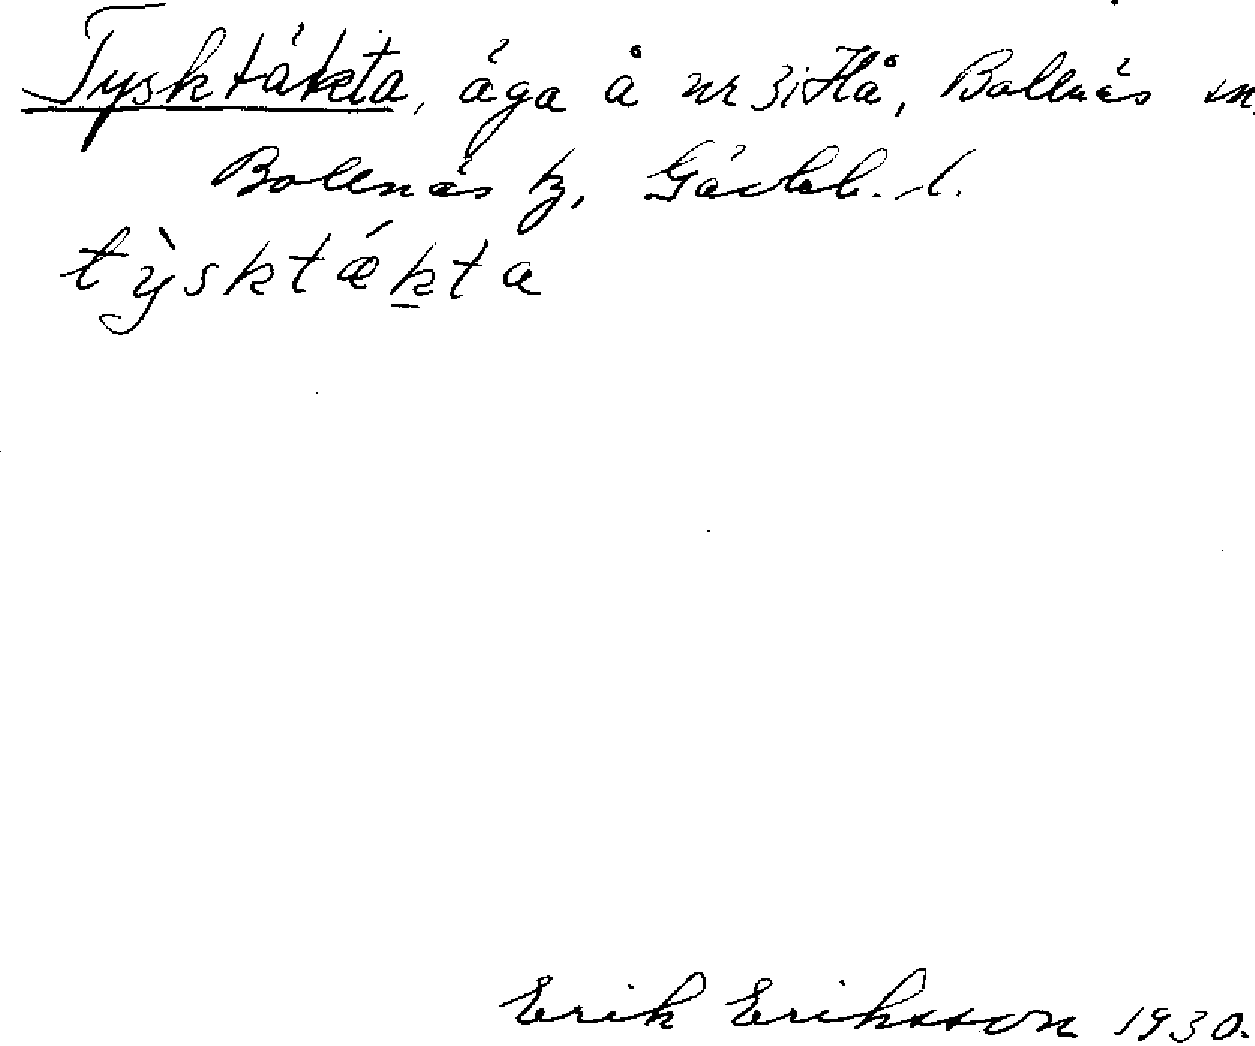 Tysktäkta, äga å nr 3 i Hå, Bollnäs sn.
Bollnäs tg, Gävleb. l.
tỳsktǽkta
Erik Eriksson 1930.